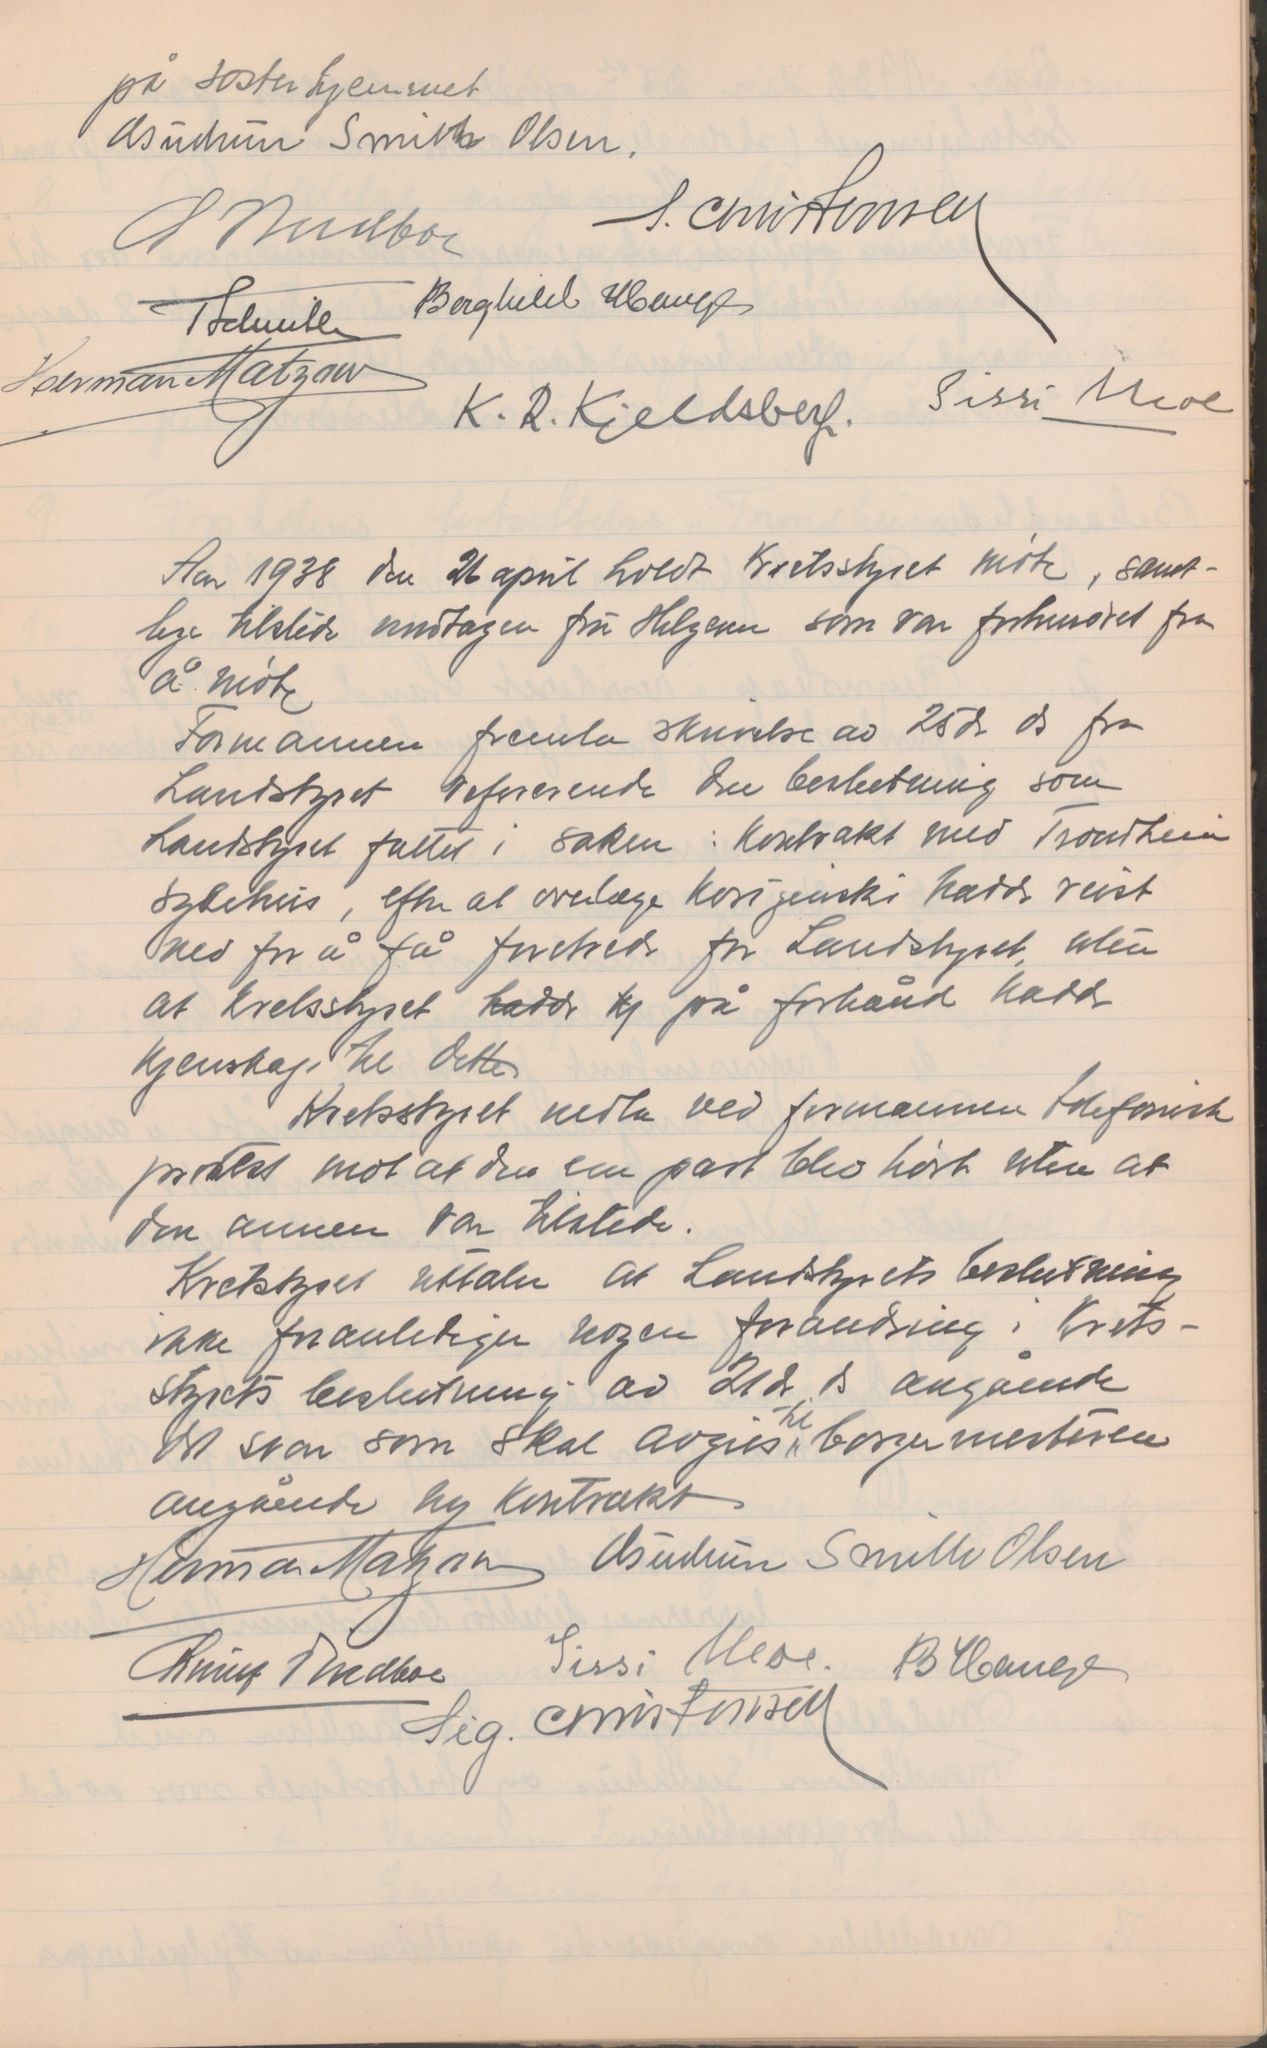 på søsterhjemmet
Gudrun Smith Olsen.
S. Christensen
Borghild Hauge
Herman Matzow
K. R. Kjeldsberg.
Sissi Moe
Aar 1938 den 26 april holdt Kretsstyret møte, samt-
lige tilstede undtagen fru Helgesen som var forhindret fra
å møte
Formannen fremla skrivelse av 25de ds fra
Landstyret refererende den beslutning som
Landstyret fattet i saken: Kontrakt med Trondheim
sykehus, efter at overlæge Korizinski hadde reist
ned for å få foretrede for Landstyret, uten
at kretsstyret hadde kj på forhånd hadde
kjenskap til dette
Kretsstyret nedla ved formannen telefonisk
protest mot at den ene part blev hørt uten at
den annen var tilstede.
Kretsstyret uttaler at Landstyrets beslutning
ikke foranlediger nogen forandring i Krets-
styrets beslutning av 21de ds angående
det svar som skal avgies til borgermesteren
angående ny kontrakt
Herman Matzow Gudrun Smith Olsen
Sissi Moe. B Hauge
Sig. Christensen